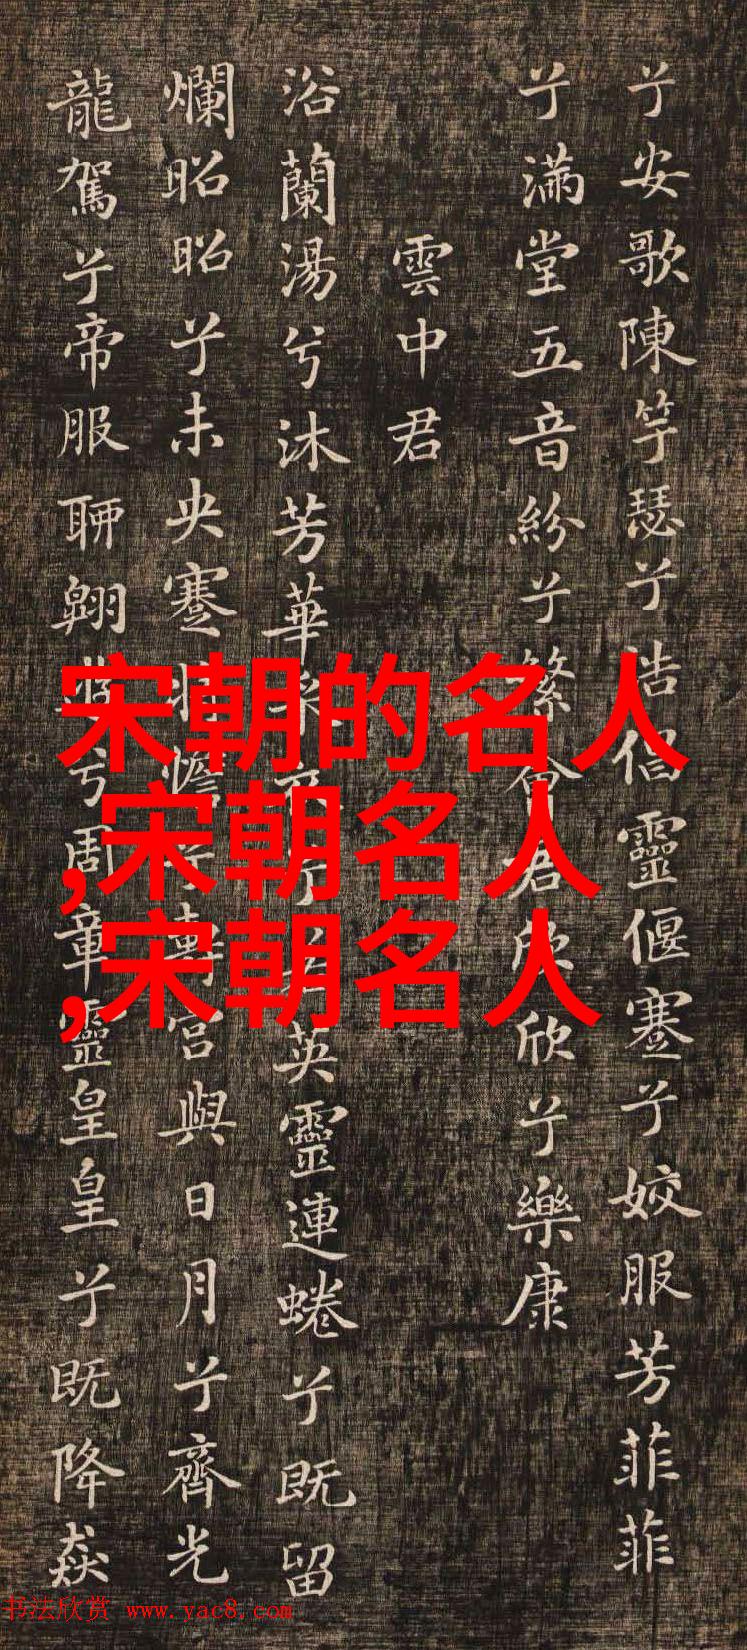 兮安歌陳竽瑟兮浩倡靈偃蹇兮姣服芳菲菲
兮滿堂五音紛兮繁會君欣欣兮樂康
雲中君
浴蘭湯兮沐芳華采衣兮若英靈連蜷兮既留
爛昭昭兮未央蹇將憺兮壽宮與日月兮齊光
龍駕兮帝服聊翱遊兮周章靈皇皇兮既降猋
宋朝的名人
,宋朝名人
,宋朝名人
书法欣赏 www.yac8.com